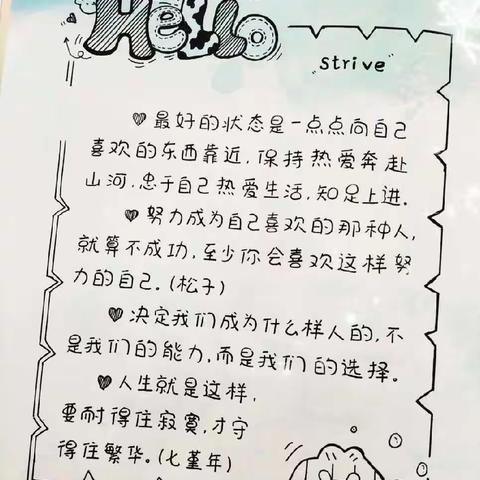 Hello
"strive"
♥ 最好的状态是一点点向自己
喜欢的东西靠近,保持热爱奔赴
山河,忠于自己热爱生活,知足上进.
♥ 努力成为自己喜欢的那种人,
就算不成功,至少你会喜欢这样努
力的自己.(松子)
♥ 决定我们成为什么样人的,不
是我们的能力,而是我们的选择。
♥ 人生就是这样,
要耐得住寂寞,才守
得住繁华.(七堇年)